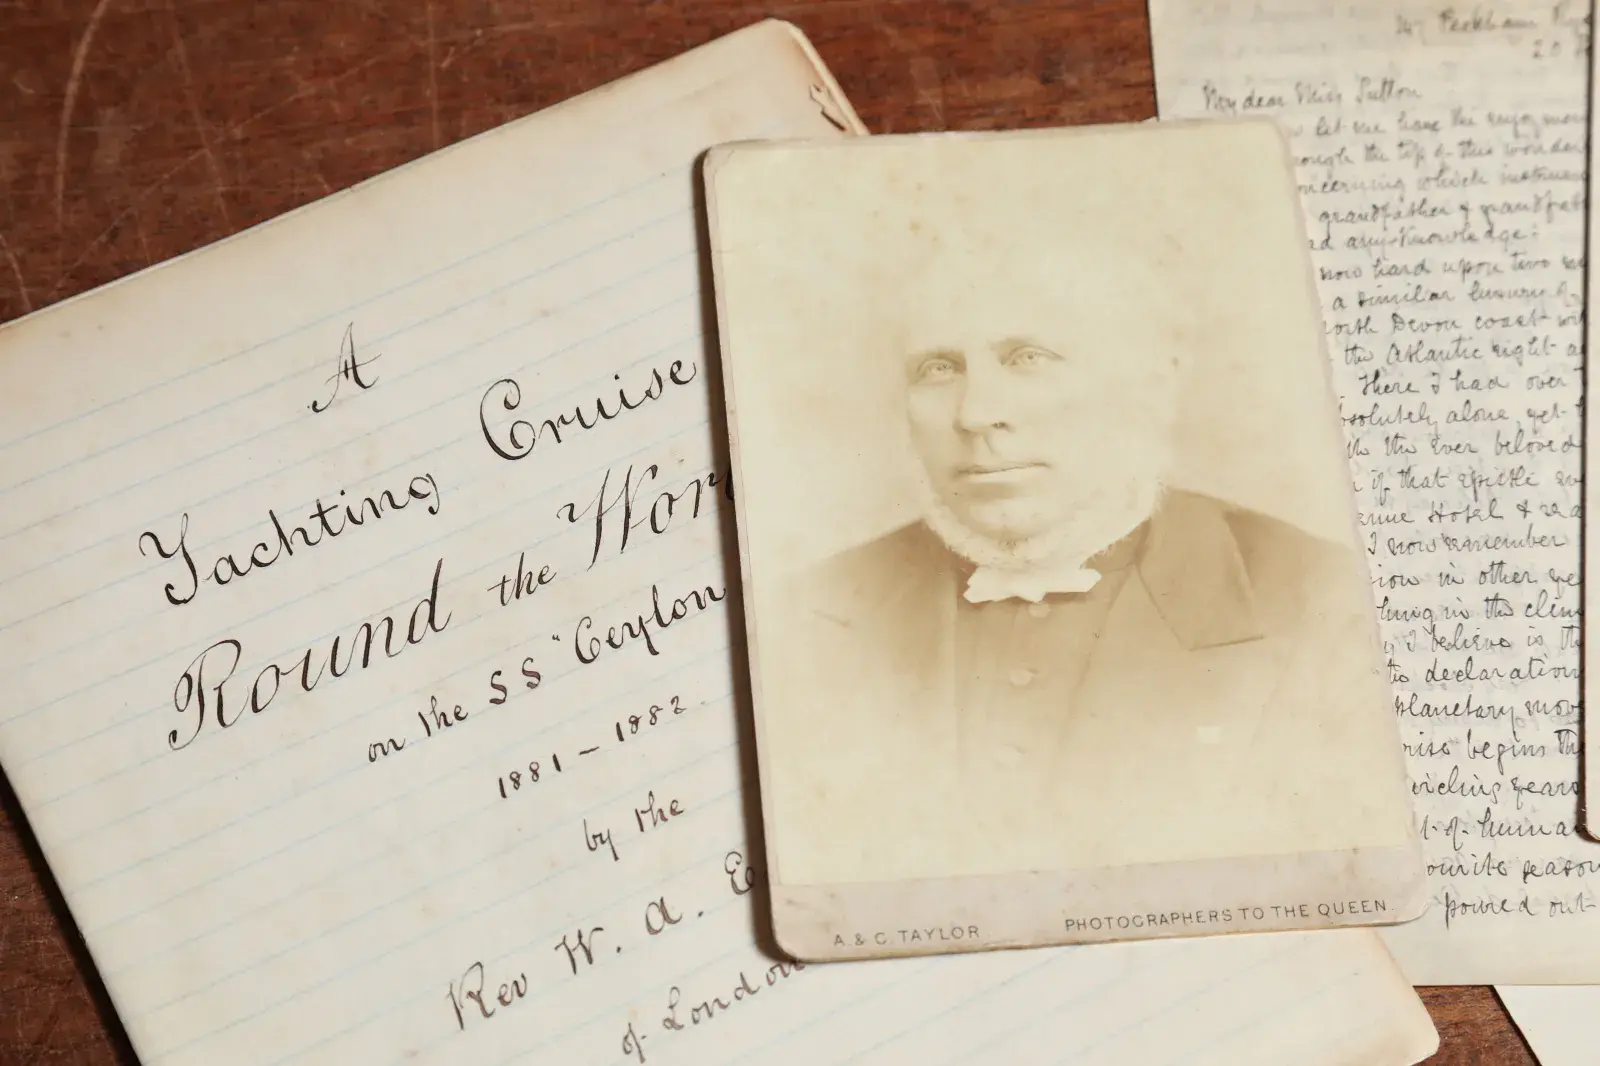 A
Yachting Cruise
Round the Wor
on the SS "Ceylon
1881 - 1882.
by the
Rev W. A. E
of London
A. & C. TAYLOR
PHOTOGRAPHERS TO THE QUEEN.
Peckham
20
My dear Miss Sutton
let me have the enjoymen
ough the top of this wonder
oncerning which instrumen
grandfather & grandfat
ad any knowledge:
now hard upon two
a similar luxury of
orth Devon coast wi
the Atlantic right a
There I had over
bsolutely alone, yet
the ever beloved
if that epistle
Hotel & rea
I now remember
ion in other ye
hing in the clim
I believe is th
declaration
planetary mov
rise begins the
years
t of human
ourite season
poured out